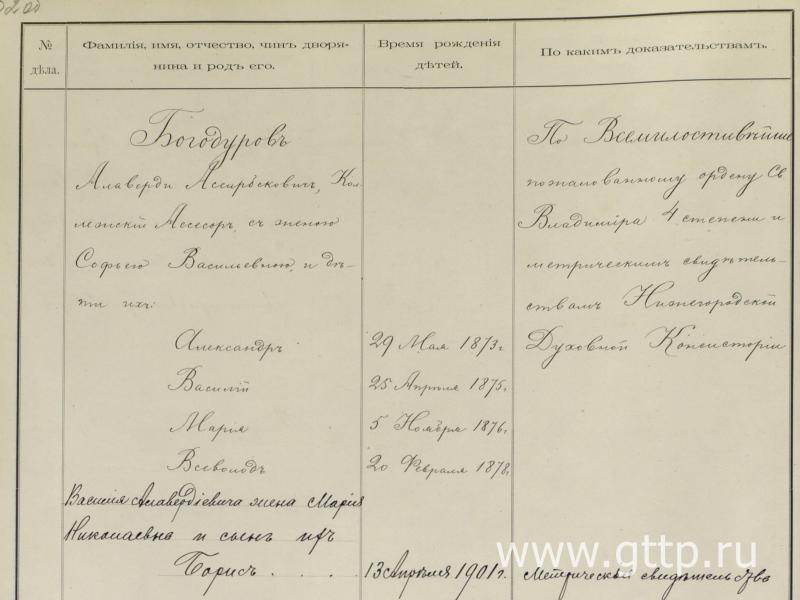 №
дѣла.
Фамилія, имя, отчество, чинъ дворя-
нина и родъ его.
Время рожденія
дѣтей.
По какимъ доказательствамъ.
Богодуровъ
Алаверди Ассирбековичъ, Кол-
лежскій Ассесоръ, съ женою
Софьею Васильевною, и дѣ-
ти ихъ:
Александръ
Василій
Марія
Всеволодъ
Василія Алавердіевича жена Марія
Николаевна и сынъ ихъ
Борисъ . . . .
29 Мая 1873г.
25 Апрѣля 1875г.
5 Ноября 1876г.
20 Февраля 1878г.
13 Апрѣля 1901г.
По Всемилостивѣйше
пожалованному ордену Св
Владиміра 4 степени и
метрическимъ свидѣтель-
ствамъ Нижегородской
Духовной Консисторіи
Метрическое свидѣтельство
www.gttp.ru